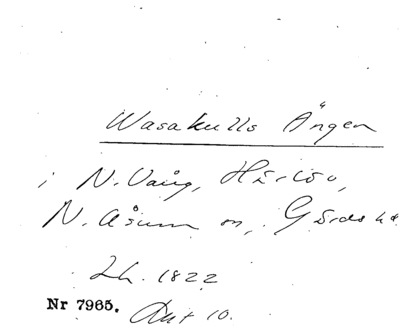 Wasakulls Ängen
i N. Vång, Härlöv,
N. Åsum m, Gärds hd
Lh. 1822
Nr 7965. Akt 10.